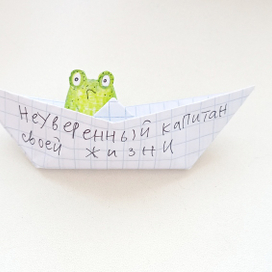 Неуверенный капитан
своей жизни